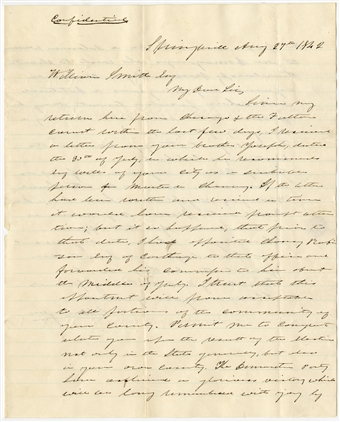 Confidential
Springfield Aug 27th 1842
William Smith Esq
My Dear Sir,
Since my
return here from Chicago & the
within the last few days, I received
a letter from your brother Joseph, dated
the 30th of July, in which he recommends
of your city as a suitable
person for Master in Chancery. If the letter
have been written and received in time
it would have received prompt atten
tion; but it so happens, that prior to
that date, I had appointed Chancy Robi
son Esq of Carthage to that office and
forwarded his commission to him about
the Middle of July. I trust that this
appointment will prove acceptable
to all portions of the community of
your County. Permit me to congrat
ulate you upon the result of the election
not only in the State generally, but also
in your own county. The Democratic party
have achieved a glorious victory which
will be long remembered with joy by